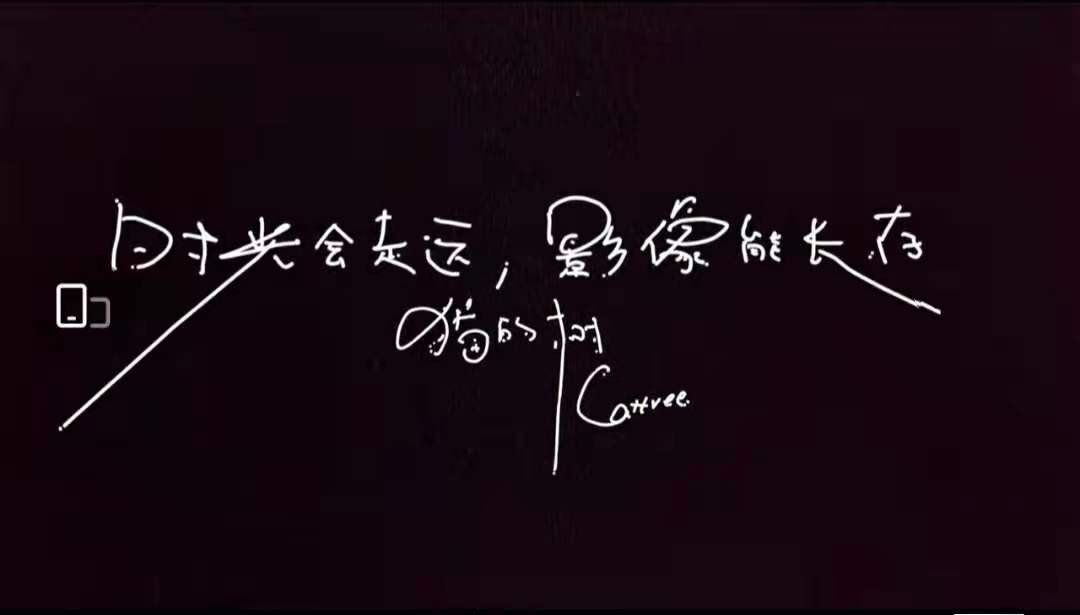 时光会走远，影像能长存
猫的树
Cattree